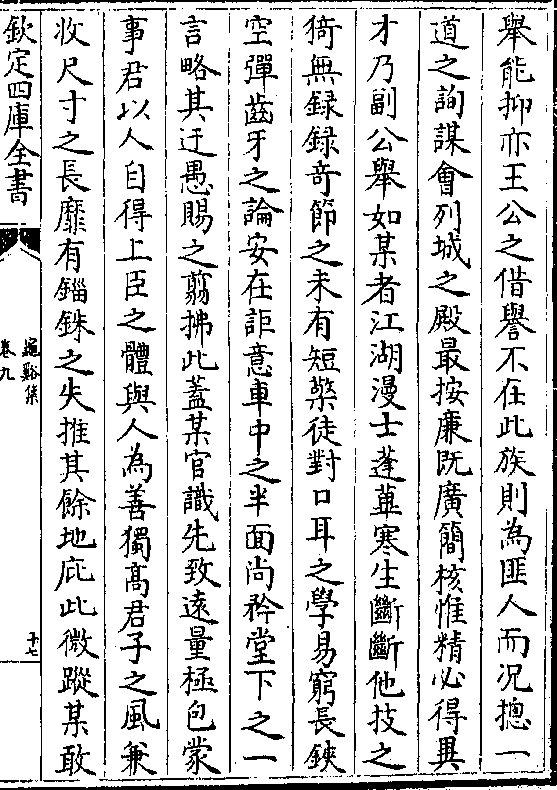 舉能抑亦王公之借譽不在此族則為匪人而况摠一
道之詢謀會列城之殿最按廉既廣簡核惟精必得異
才乃副公舉如某者江湖漫士蓬蓽寒生斷斷他技之
猗無録録竒節之未有短檠徒對口耳之學易窮長鋏
空彈齒牙之論安在詎意車中之半面尚矜堂下之一
言略其迂愚賜之翦拂此蓋某官識先致遠量極包蒙
事君以人自得上臣之體與人為善獨髙君子之風兼
收尺寸之長靡有錙銖之失推其餘地庇此微蹤某敢
欽定四庫全書
谿集
卷九
十七